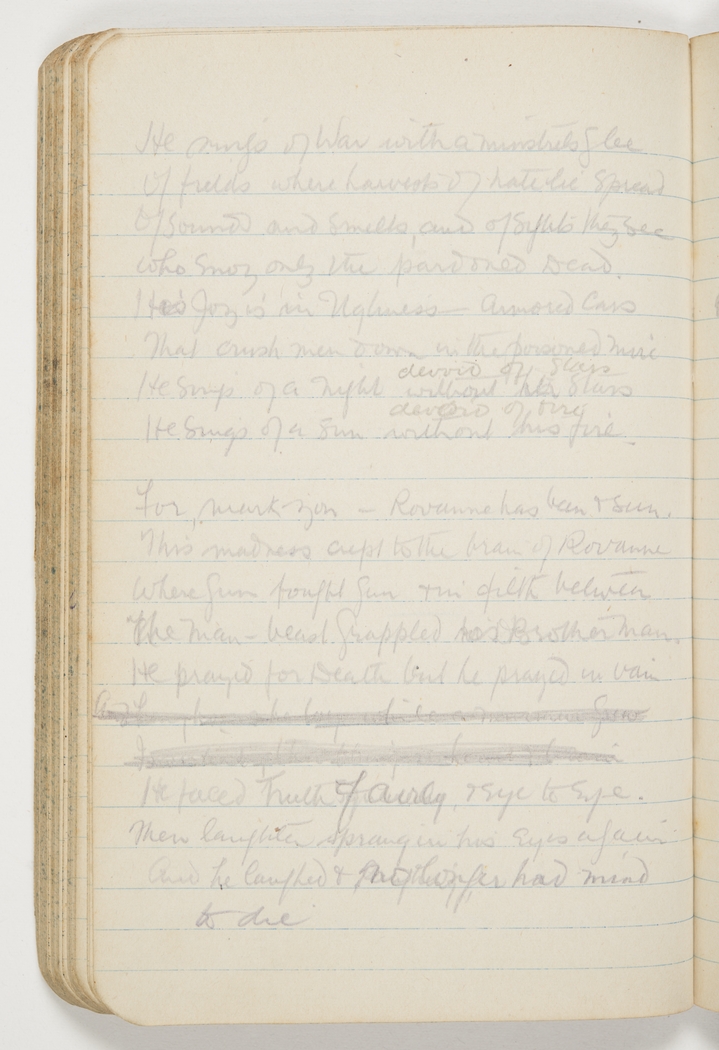 He sings of War with a minstrels glee
Of fields where harvests of hate lie spread
Of sound and smells, and of sights they see
Who envy only the pardoned Dead.
His Joy is in Ugliness — Armored Cars
That crush men down in the poisoned mire
devoid of Stars
He Sings of a Night without her Stars
devoid of fire
He Sings of a Sun without his fire.
For, mark you — Rovanne has been & seen.
This madness crept to the brain of Rovanne
Where Gun fought Gun & in filth between
The Man-beast grappled his Brother Man.
He prayed for Death but he prayed in vain
And
He faced Truth fairly, & Eye to Eye.
Then laughter sprang in his Eyes again
And he laughed & no longer had mind
to die